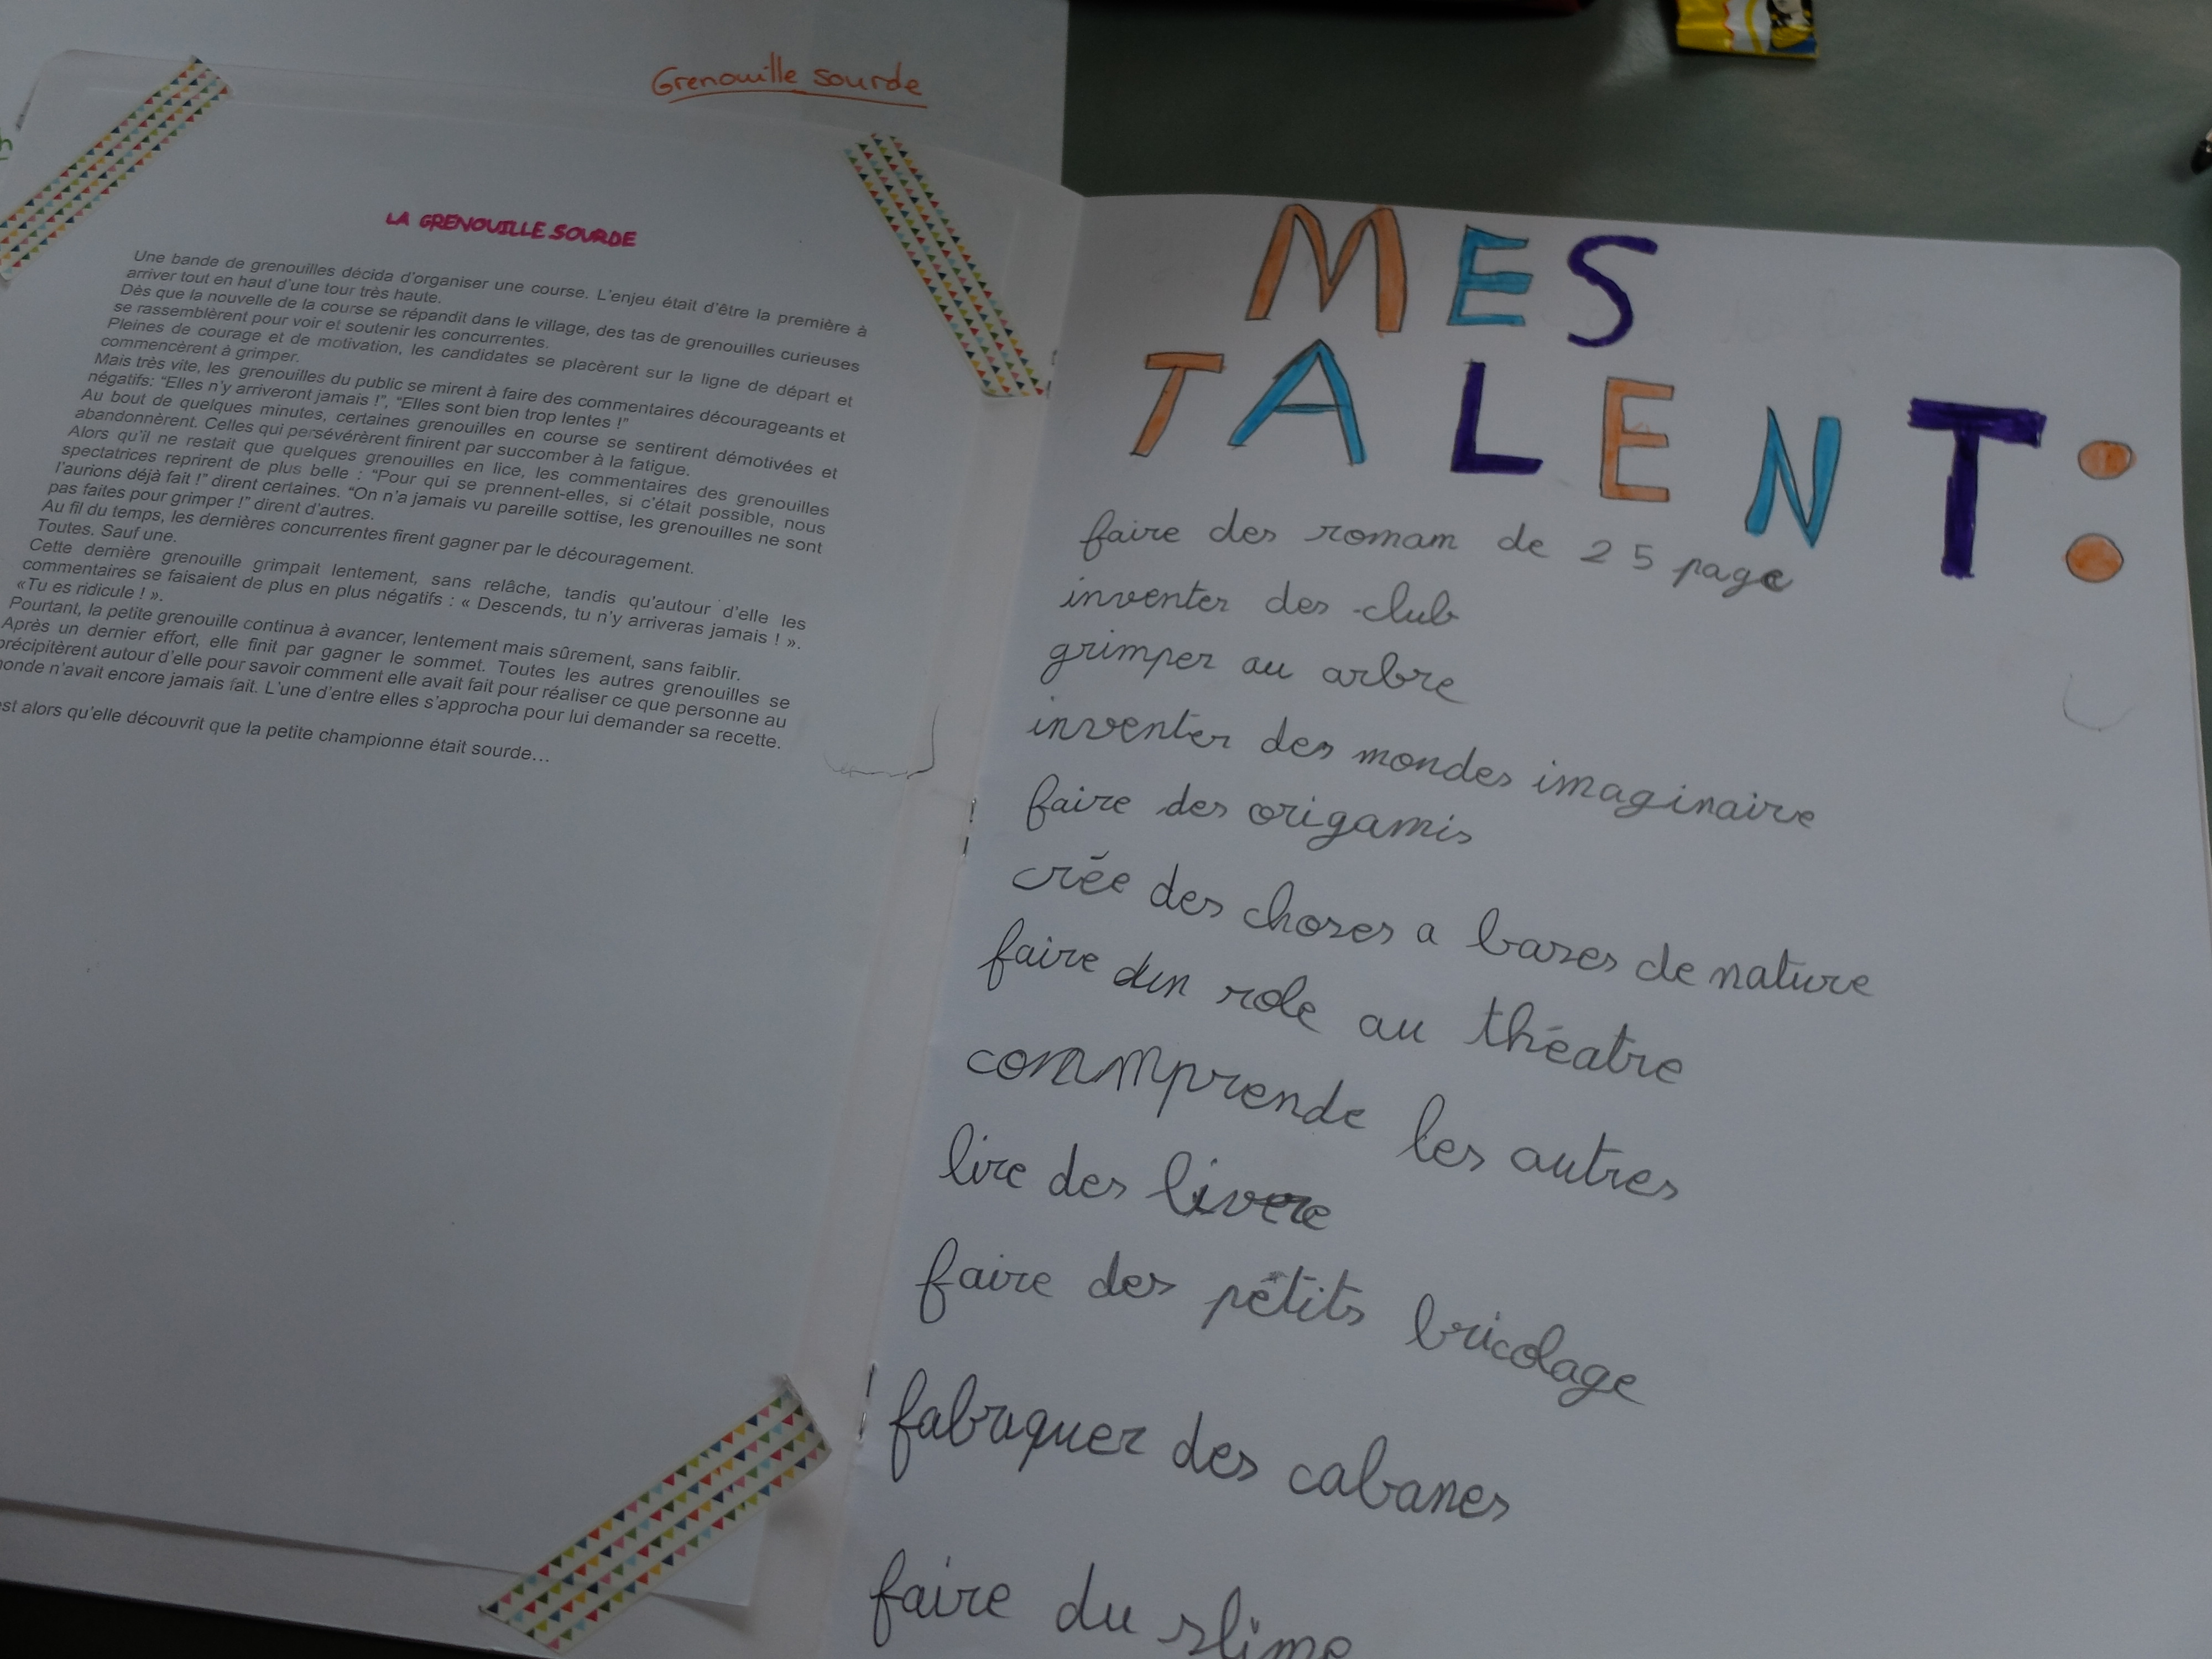 Grenouille sourde
LA GRENOUILLE SOURDE
Une bande de grenouilles décida d'organiser une course. L'enjeu était d'être la première à
arriver tout en haut d'une tour très haute.
Dès que la nouvelle de la course se répandit dans le village, des tas de grenouilles curieuses
se rassemblèrent pour voir et soutenir les concurrentes.
Pleines de courage et de motivation, les candidates se placèrent sur la ligne de départ et
commencèrent à grimper.
Mais très vite, les grenouilles du public se mirent à faire des commentaires décourageants et
négatifs: "Elles n'y arriveront jamais !", "Elles sont bien trop lentes !"
Au bout de quelques minutes, certaines grenouilles en course se sentirent démotivées et
abandonnèrent. Celles qui persévérèrent finirent par succomber à la fatigue.
Alors qu'il ne restait que quelques grenouilles en lice, les commentaires des grenouilles
spectatrices reprirent de plus belle : "Pour qui se prennent-elles, si c'était possible, nous
l'aurions déjà fait !" dirent certaines. "On n'a jamais vu pareille sottise, les grenouilles ne sont
pas faites pour grimper !" dirent d'autres.
Au fil du temps, les dernières concurrentes firent gagner par le découragement.
Toutes. Sauf une.
Cette dernière grenouille grimpait lentement, sans relâche, tandis qu'autour d'elle les
commentaires se faisaient de plus en plus négatifs : « Descends, tu n'y arriveras jamais ! ».
«Tu es ridicule ! ».
Pourtant, la petite grenouille continua à avancer, lentement mais sûrement, sans faiblir.
Après un dernier effort, elle finit par gagner le sommet. Toutes les autres grenouilles se
précipitèrent autour d'elle pour savoir comment elle avait fait pour réaliser ce que personne au
monde n'avait encore jamais fait. L'une d'entre elles s'approcha pour lui demander sa recette.
est alors qu'elle découvrit que la petite championne était sourde...
MES
TALENT:
faire des romam de 25 page
inventer des club
grimper au arbre
inventer des mondes imaginaire
faire des origamis
crée des choses a bases de nature
faire dun role au théatre
commprende les autres
lire des livere
faire des pétits bricolage
fabriquer des cabanes
faire du slime